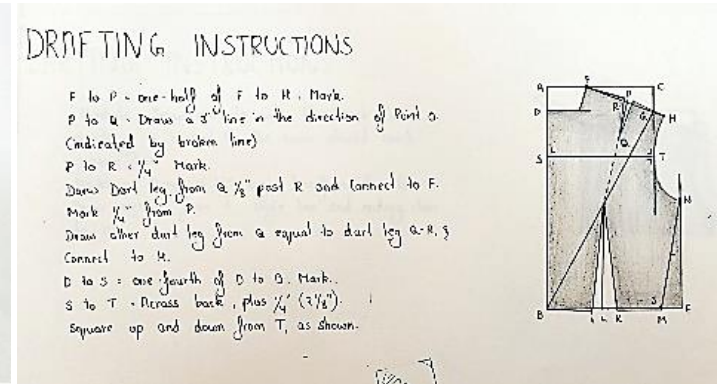 DRAFTING INSTRUCTIONS
F to P - one-half of F to H. Mark.
P to Q - Draw a 3" line in the direction of Point O.
(indicated by broken line)
P to R - 1/4" Mark.
Draw Dart leg from Q 1/8" past R and Connect to F.
Mark 1/4" from P.
Draw other dart leg from Q equal to dart leg Q-R, &
Connect to H.
D to S = one-fourth of D to B. Mark.
S to T - Across back, plus 1/4" (7 1/8").
Square up and down from T, as shown.
A F C
P
R G
D H
Q
S T
N
B L K M E